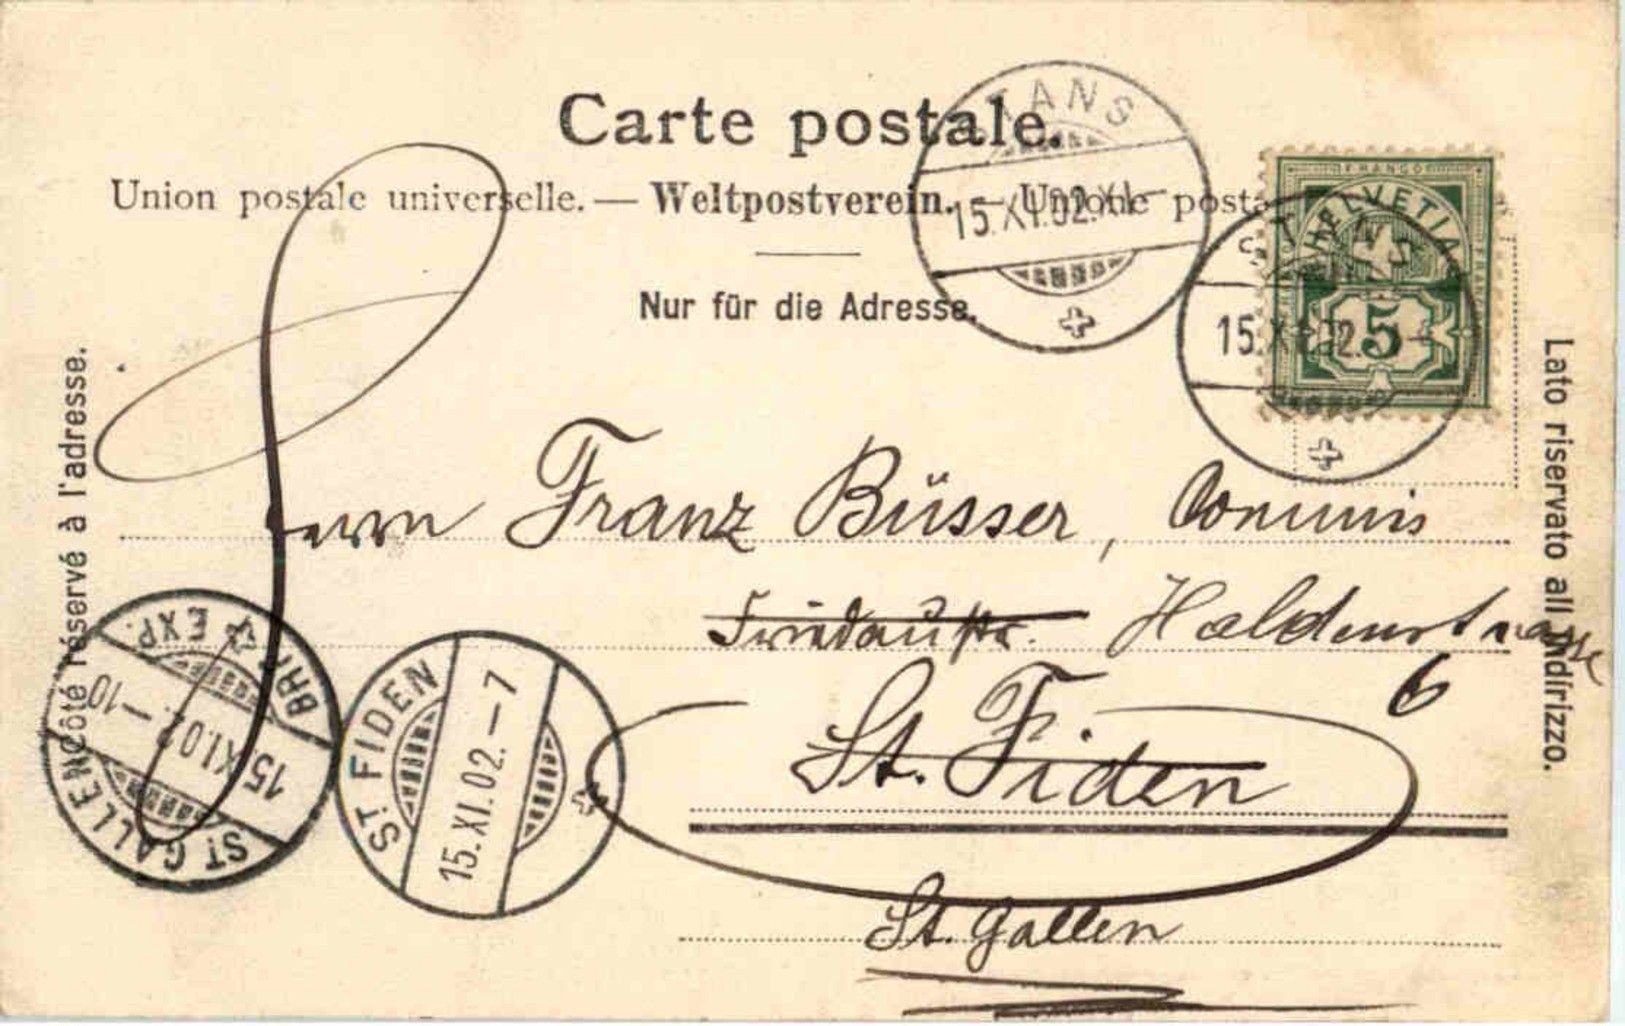 Carte postale.
Union postale universelle. — Weltpostverein. — Unione posta
Nur für die Adresse.
Côté réservé à l'adresse.
Lato riservato all'indirizzo.
STANS
15.XI.02.XI-
ST
15.XI.02.
FRANCO
HELVETIA
5
Herrn Franz Büsser, Commis
Haldenstrasse
6
St. Fiden
St. Gallen
ST. GALLEN BRF. EXP.
15.XI.02.-10
ST. FIDEN
15.XI.02.-7